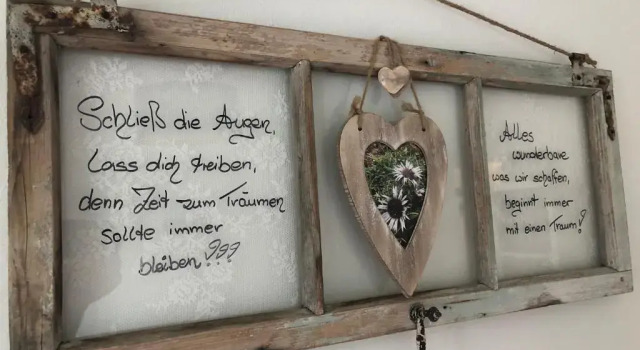 Schließ die Augen,
lass dich treiben,
denn Zeit zum Träumen
sollte immer
bleiben!!!
Alles
wunderbare
was wir schaffen,
beginnt immer
mit einen Traum!